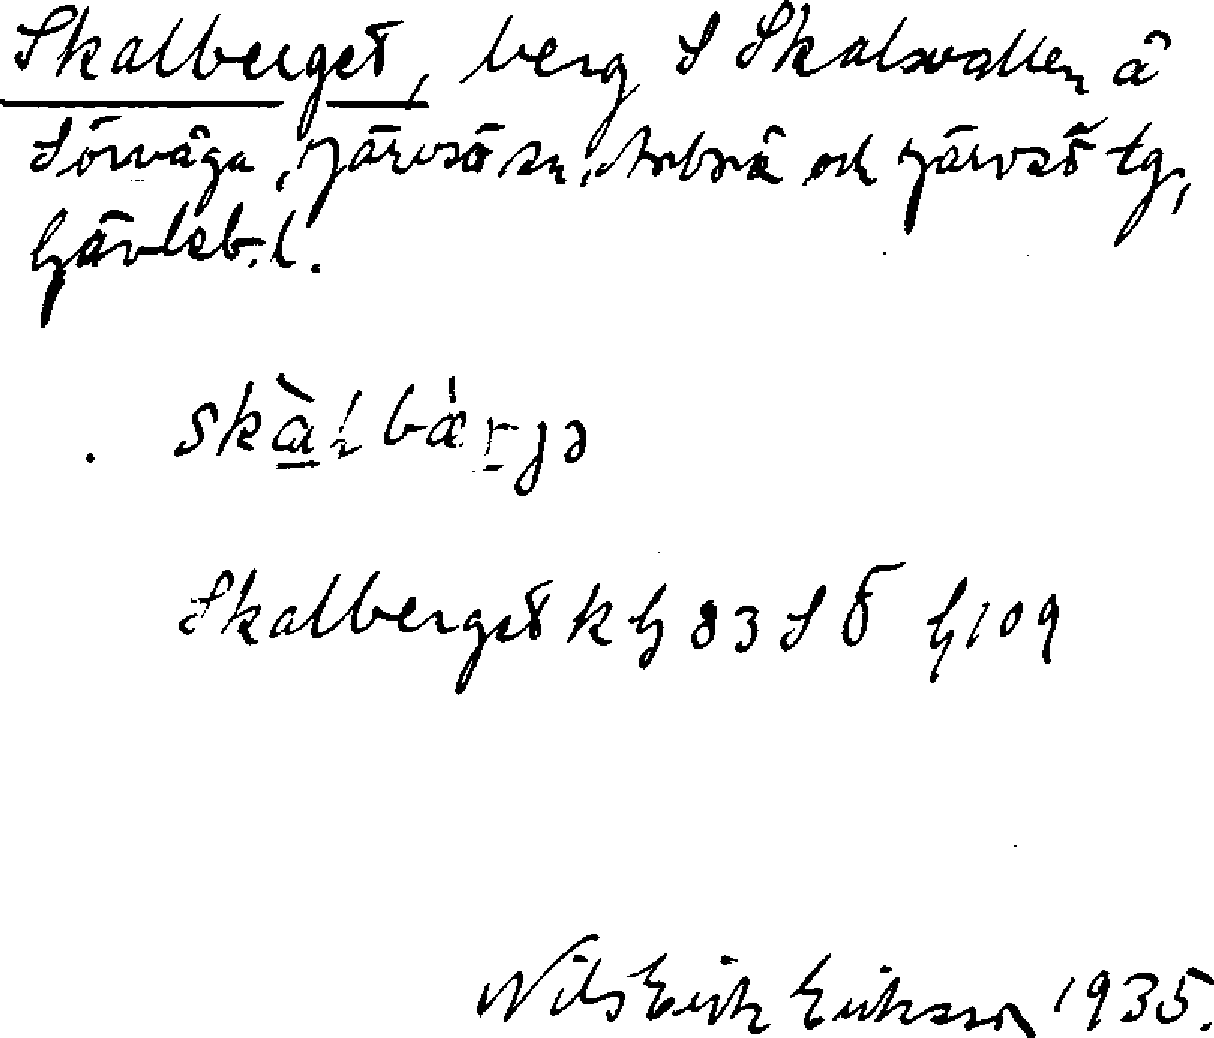 Skalberget, berg S Skalsvallen å
Sörvåga, Järvsö sn, Arbrå och Järvsö tg,
Gävleb. l.
skàlbæ̀rjə
Skalberget k G 83 S Ö G 109
Nils Erik Eriksson 1935.